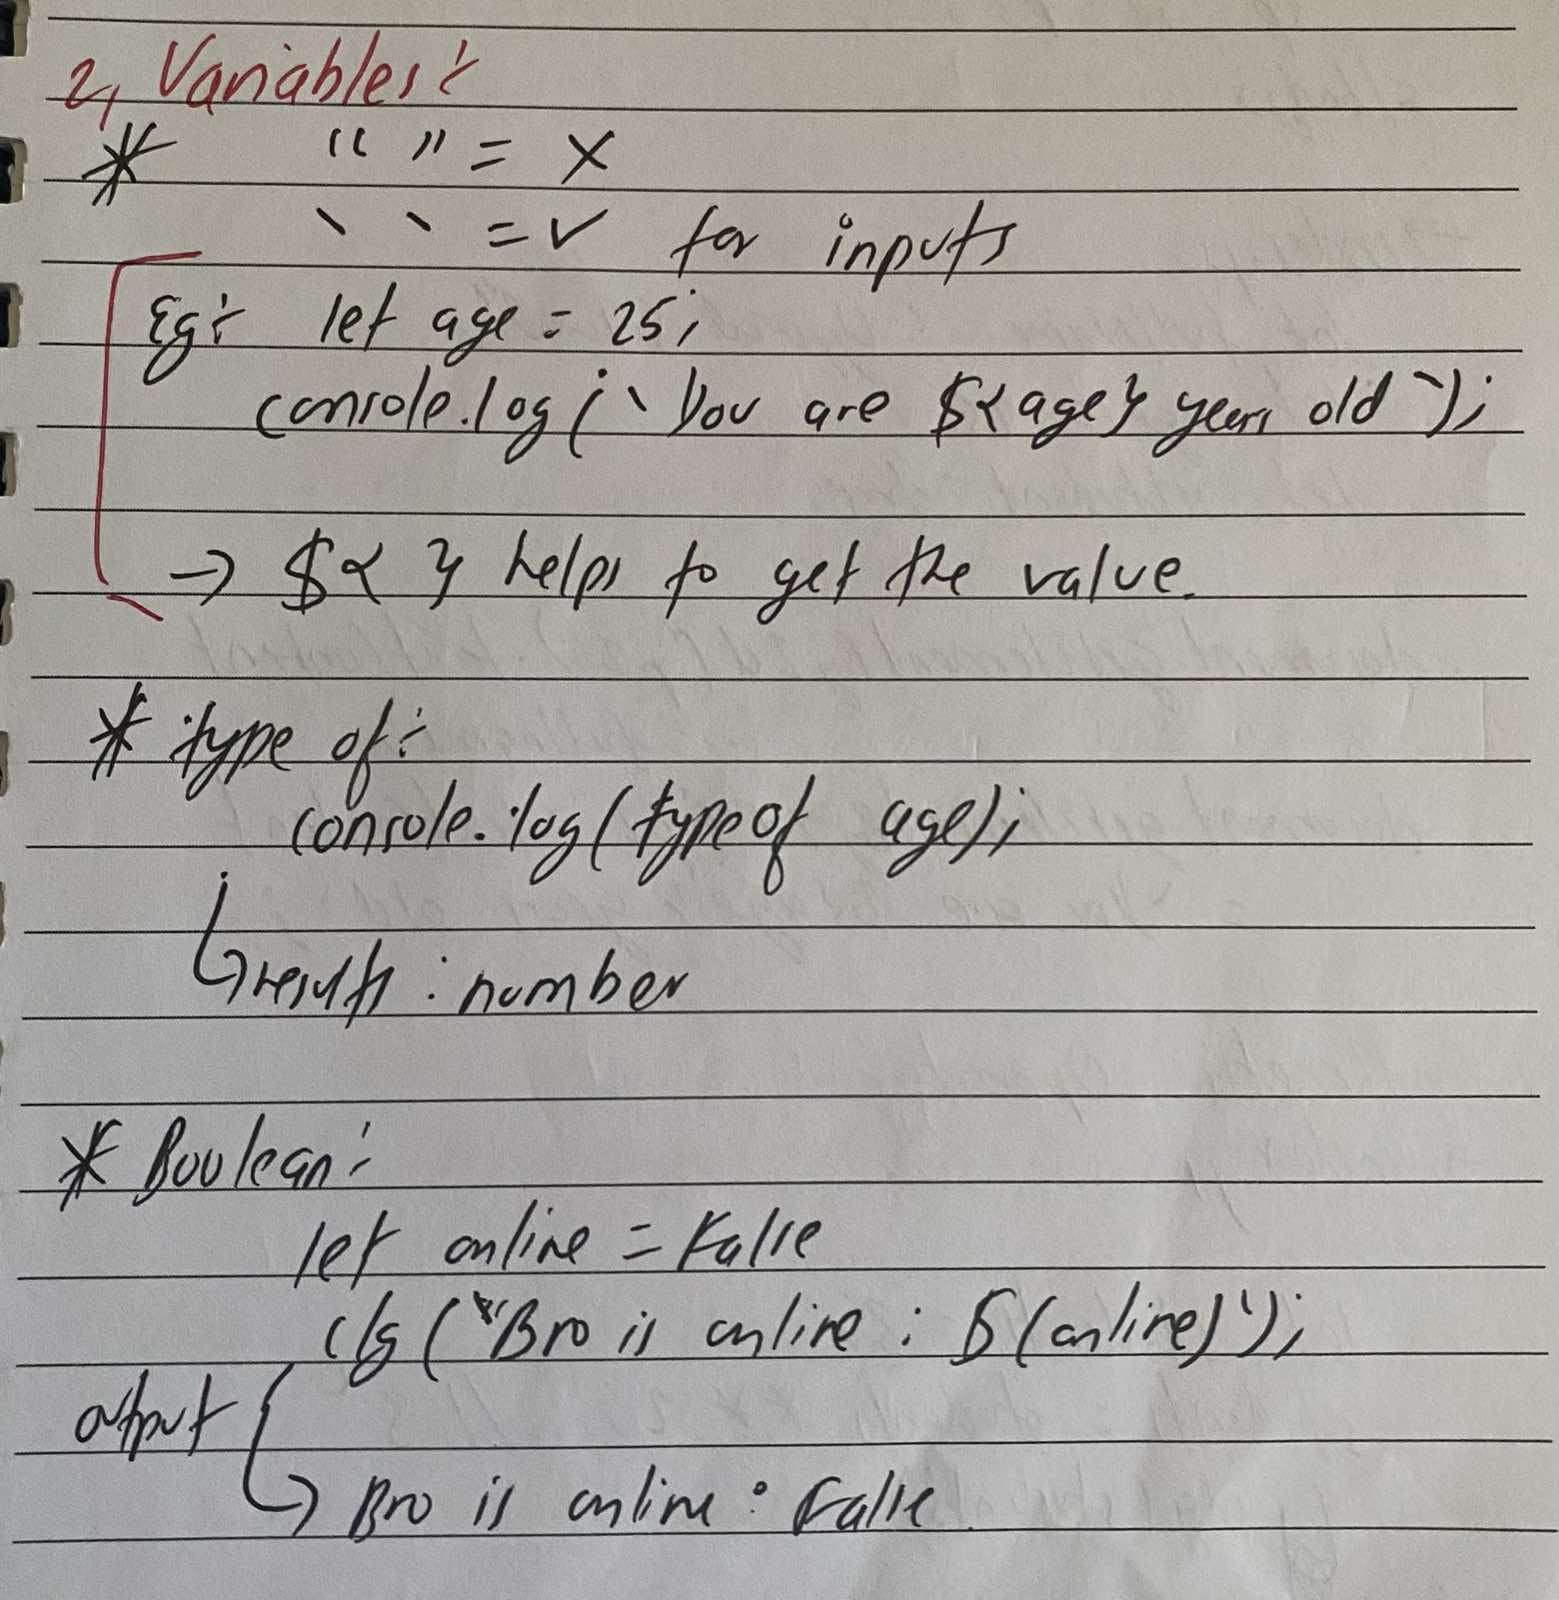 2, Variables:
* “ ” = X
` ` = ✓ for inputs
Eg: let age = 25;
console.log(`You are ${age} years old`);
→ ${ } helps to get the value.
* type of:
console.log(typeof age);
↳ result : number
* Boolean:
let online = False
clg("Bro is online : $(online)`);
output
↳ Bro is online : False